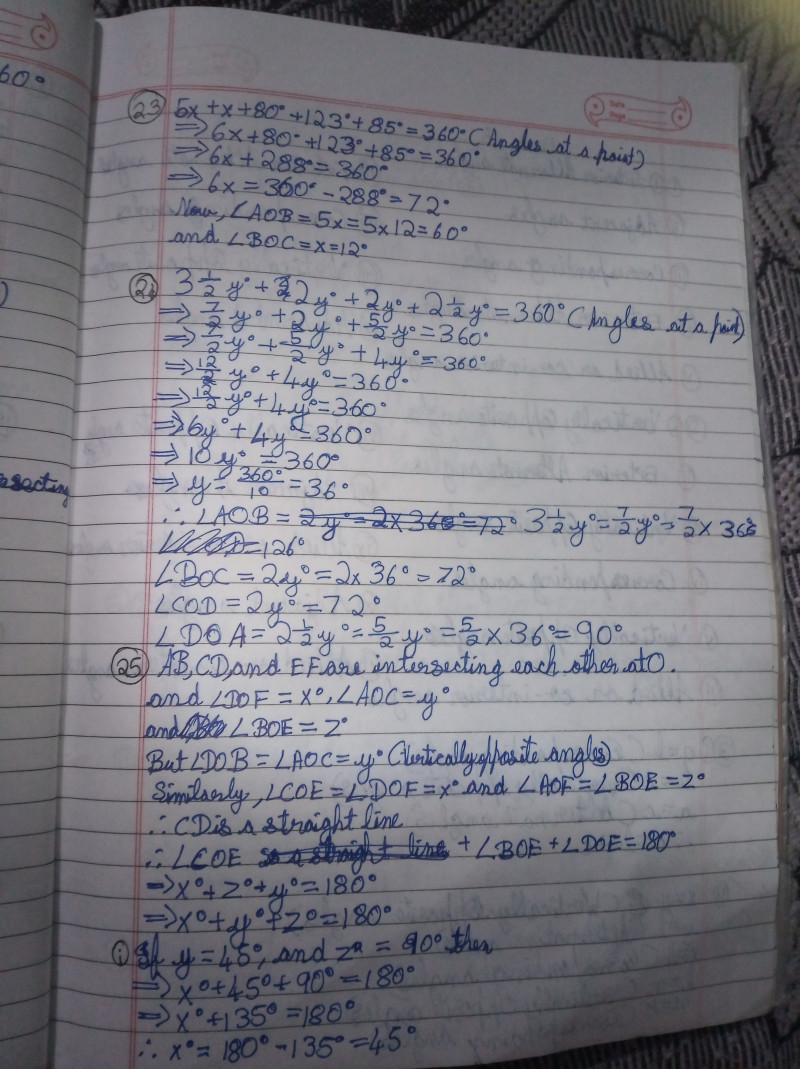 60°
)
secting
Date
Page
23 5x+x+80°+123°+85°=360° (Angles at a point)
⇒6x+80°+123°+85°=360°
⇒6x+288°=360°
⇒6x=360°-288°=72°
Now, ∠AOB=5x=5x12=60°
and ∠BOC=x=12°
3 1/2 y°+2y°+2y°+2 1/2 y°=360° (Angles at a point)
⇒ 7/2 y°+2y°+5/2 y°=360°
⇒ 7/2 y°+5/2 y°+4y°=360°
⇒ 12/2 y°+4y°=360°
⇒ 12/2 y°+4y°=360°
⇒6y°+4y°=360°
⇒10y°=360°
⇒ y=360°/10=36°
∴ ∠AOB= 2y°=2x36°=72° 3 1/2 y°=7/2 y°=7/2 x 36°
=126°
∠BOC=2y°=2x36°=72°
∠COD=2y°=72°
∠DOA=2 1/2 y°=5/2 y°=5/2 x 36°=90°
25 AB, CD, and EF are intersecting each other at O.
and ∠DOF=x°, ∠AOC=y°
and ∠BOE=z°
But ∠DOB=∠AOC=y° (Vertically opposite angles)
Similarly, ∠COE=∠DOF=x° and ∠AOF=∠BOE=z°
∴ CD is a straight line
∴ ∠COE is a straight line +∠BOE+∠DOE=180°
⇒x°+z°+y°=180°
⇒x°+y°+z°=180°
i If y=45°, and z°=90° then
⇒x°+45°+90°=180°
⇒x°+135°=180°
∴ x°=180°-135°=45°